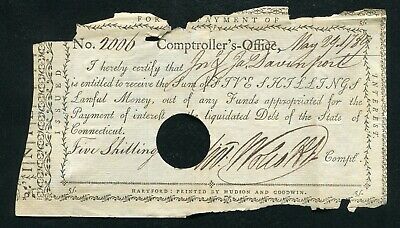 FOR PAYMENT OF
INTEREST
ISSUED
No. 2006 Comptroller's-Office, May 29, 178
I hereby certify that Jno. Davenport
is entitled to receive the Sum of FIVE SHILLINGS
Lawful Money, out of any Funds appropriated for the
Payment of interest on the liquidated Debt of the State of
Connecticut.
Five Shilling Wolcott Compt.
5/. 5/.
HARTFORD: PRINTED BY HUDSON AND GOODWIN.